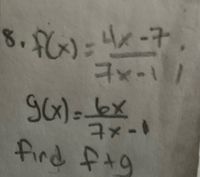 8. f(x) = (4x - 7)/(7x - 1);
g(x) = (6x)/(7x - 1)
find f + g